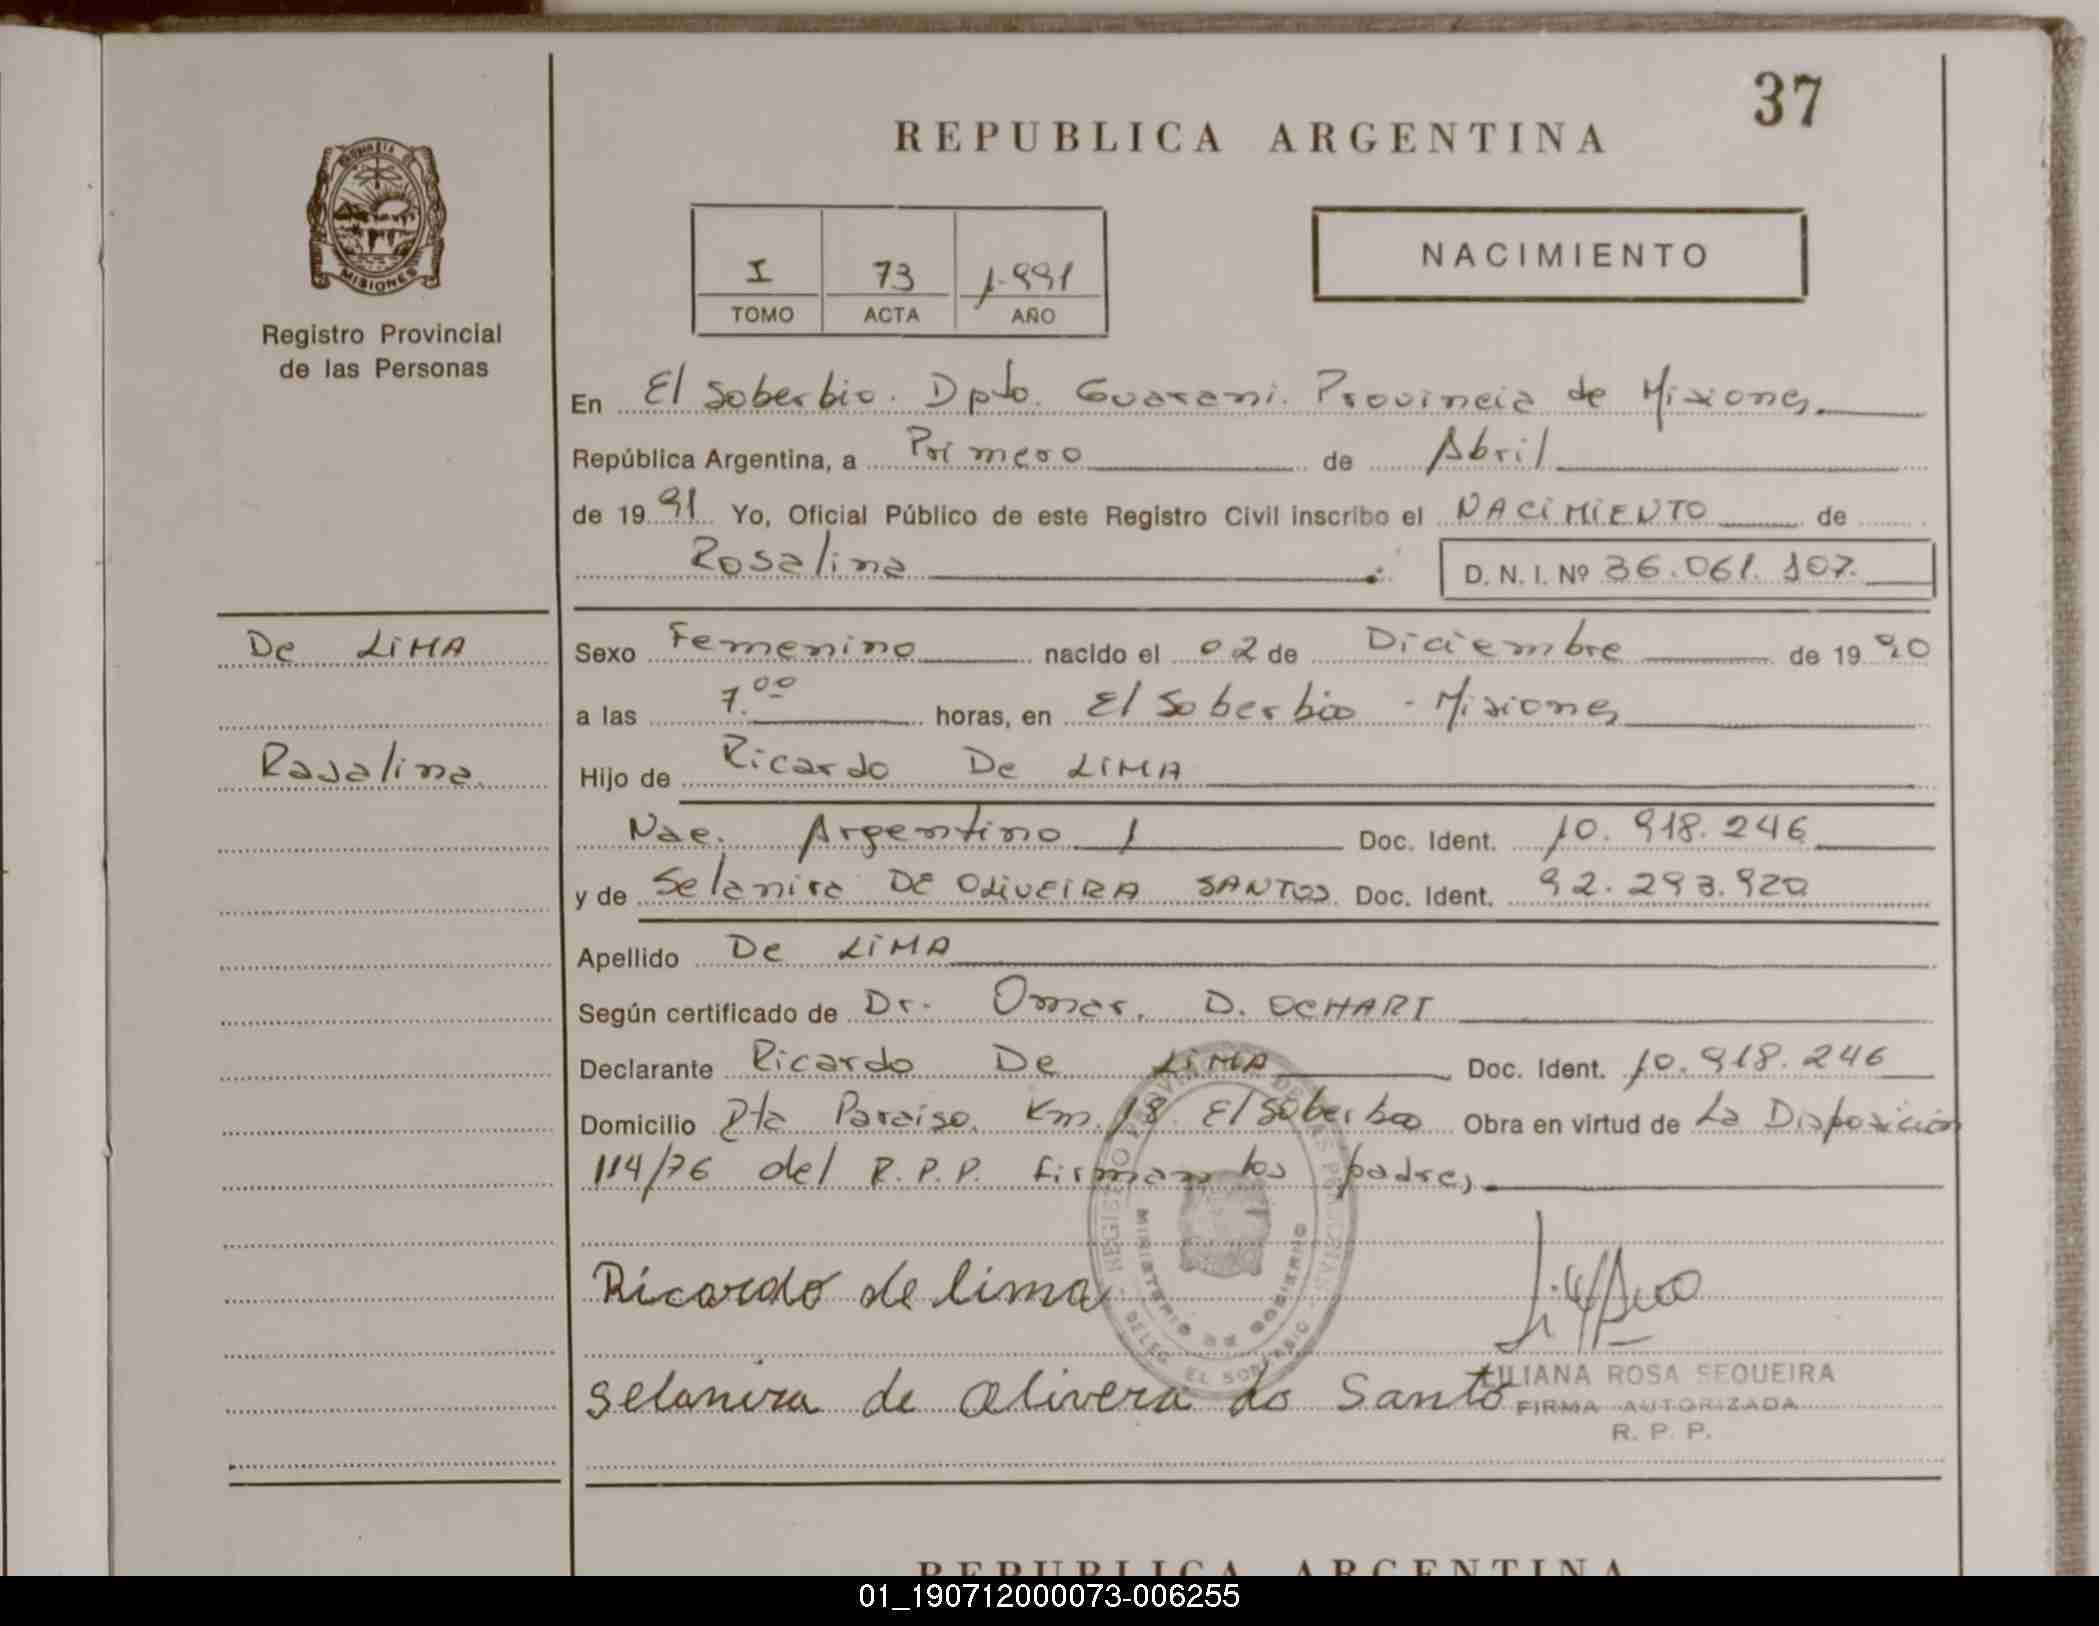 37
REPUBLICA ARGENTINA
MISIONES
Registro Provincial
de las Personas
I 73 1.991
TOMO ACTA AÑO
NACIMIENTO
En El Soberbio. Dpto. Guarani. Provincia de Misiones
República Argentina, a Primero de Abril
de 1991 Yo, Oficial Público de este Registro Civil inscribo el NACIMIENTO de
Rosalina D. N. I. Nº 36.061.107.
De LIMA
Rosalina
Sexo Femenino nacido el 02 de Diciembre de 1990
a las 7.00 horas, en El Soberbio - Misiones
Hijo de Ricardo De LIMA
Nac. Argentino Doc. Ident. 10.918.246
y de Selanira DE OLIVEIRA SANTOS Doc. Ident. 92.293.920
Apellido De LIMA
Según certificado de Dr. Omar. D. OCHART
Declarante Ricardo De LIMA Doc. Ident. 10.918.246
Domicilio Pto Paraiso. Km. 18 El Soberbio Obra en virtud de La Disposición
114/76 del R.P.P. firman los padres
MINISTERIO DE GOBIERNO
DELEG. EL SOBERBIO
Ricardo de lima
selanira de olivera do Santo
LILIANA ROSA SEQUEIRA
FIRMA AUTORIZADA
R. P. P.
REPUBLICA ARGENTINA
01_190712000073-006255